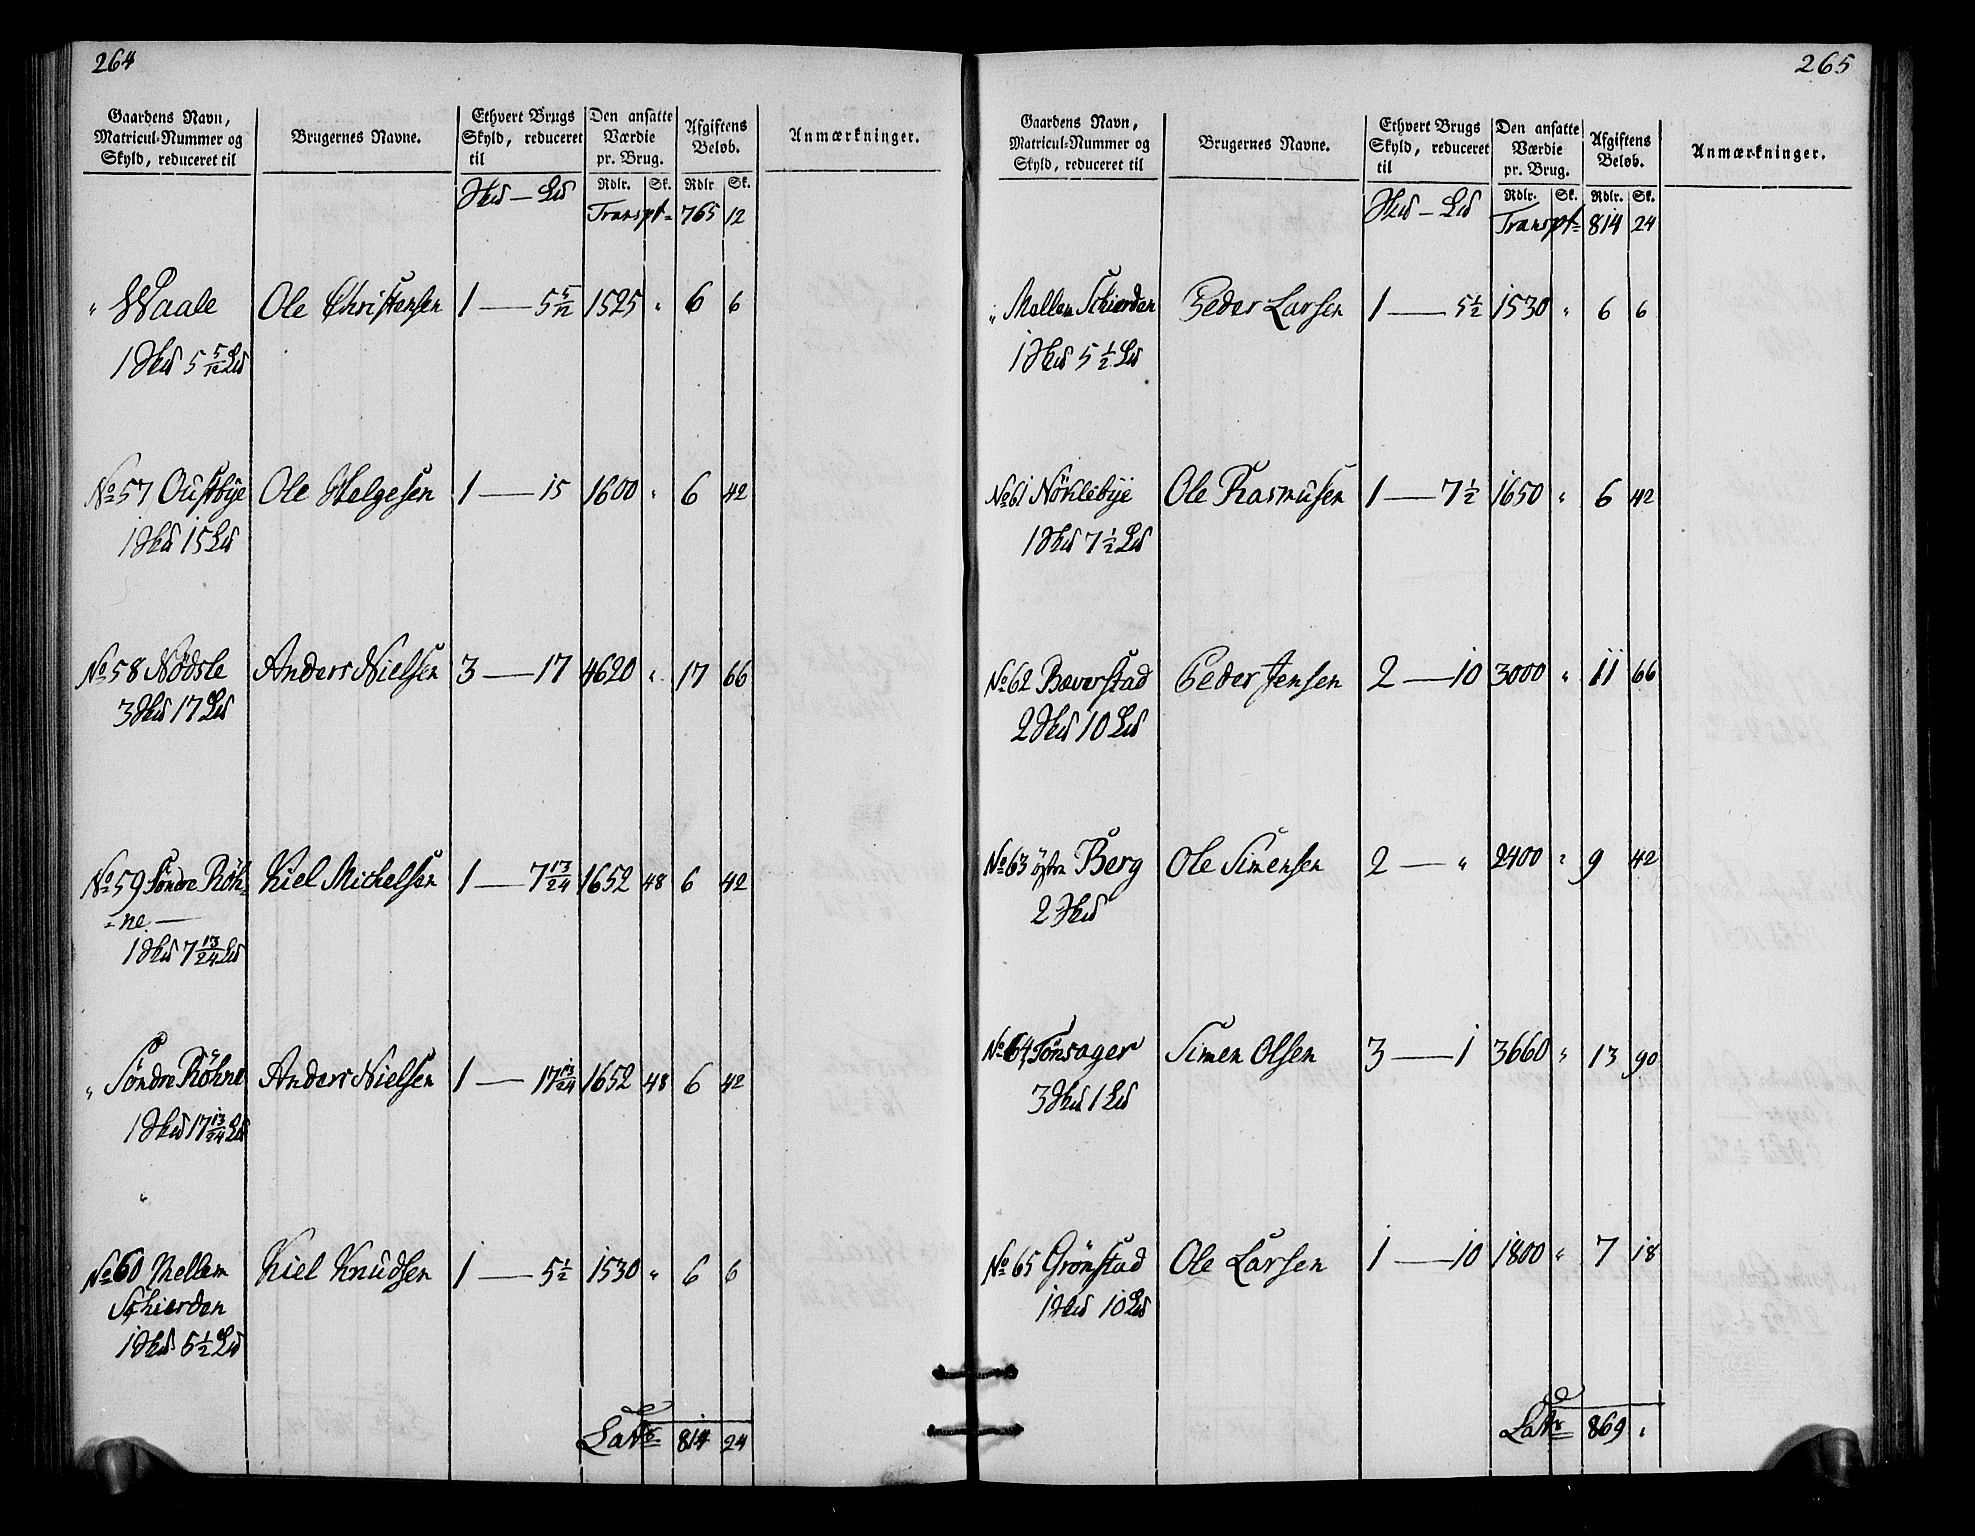 264
Gaardens Navn, Matricul-Nummer og Skyld, reduceret til
Brugernes Navne.
Ethvert Brugs Skyld, reduceret til
Den ansatte Værdie pr. Brug.
Afgiftens Beløb.
Anmærkninger.
Hud — Ld Rdlr. Sk. Rdlr Sk.
Transpt= 765 12
" Waale Ole Christensen 1 — 5 5/12 1525 " 6 6
1 Hud 5 5/12 Ld
No 57 Oustbye Ole Helgesen 1 — 15 1600 " 6 42
1 Hud 15 Ld
No 58 Nødsle Anders Nielsen 3 — 17 4620 " 17 66
3 Hud 17 Ld
No 59 Søndre Röh= Kiel Michelsen 1 — 7 13/24 1652 48 6 42
=ne —
1 Hud 7 13/24 Ld
" Søndre Röhne Anders Nielsen 1 — 17 13/24 1652 48 6 42
1 Hud 17 13/24 Ld
"
No 60 Mellem Kiel Knudsen 1 — 5 1/2 1530 " 6 6
Schierden
1 Hud 5 1/2 Ld
Latr 814 24
265
Gaardens Navn, Matricul-Nummer og Skyld, reduceret til
Brugernes Navne.
Ethvert Brugs Skyld, reduceret til
Den ansatte Værdie pr. Brug.
Afgiftens Beløb.
Anmærkninger.
Hud — Ld Rdlr. Sk. Rdlr. Sk.
Transpt= 814 24
" Mellem Schierden Peder Larsen 1 — 5 1/2 1530 " 6 6
1 Hud 5 1/2 Ld
No 61 Nöhlebye Ole Rasmusen 1 — 7 1/2 1650 " 6 42
1 Hud 7 1/2 Ld
No 62 Bæverstad Peder Jensen 2 — 10 3000 " 11 66
2 Hud 10 Ld
No 63 östre Berg Ole Simensen 2 — " 2400 " 9 42
2 Hud
No 64 Tønsager Simen Olsen 3 — 1 3660 " 13 90
3 Hud 1 Ld
No 65 Grönstad Ole Larsen 1 — 10 1800 " 7 18
1 Hud 10 Ld
Latr 869 "